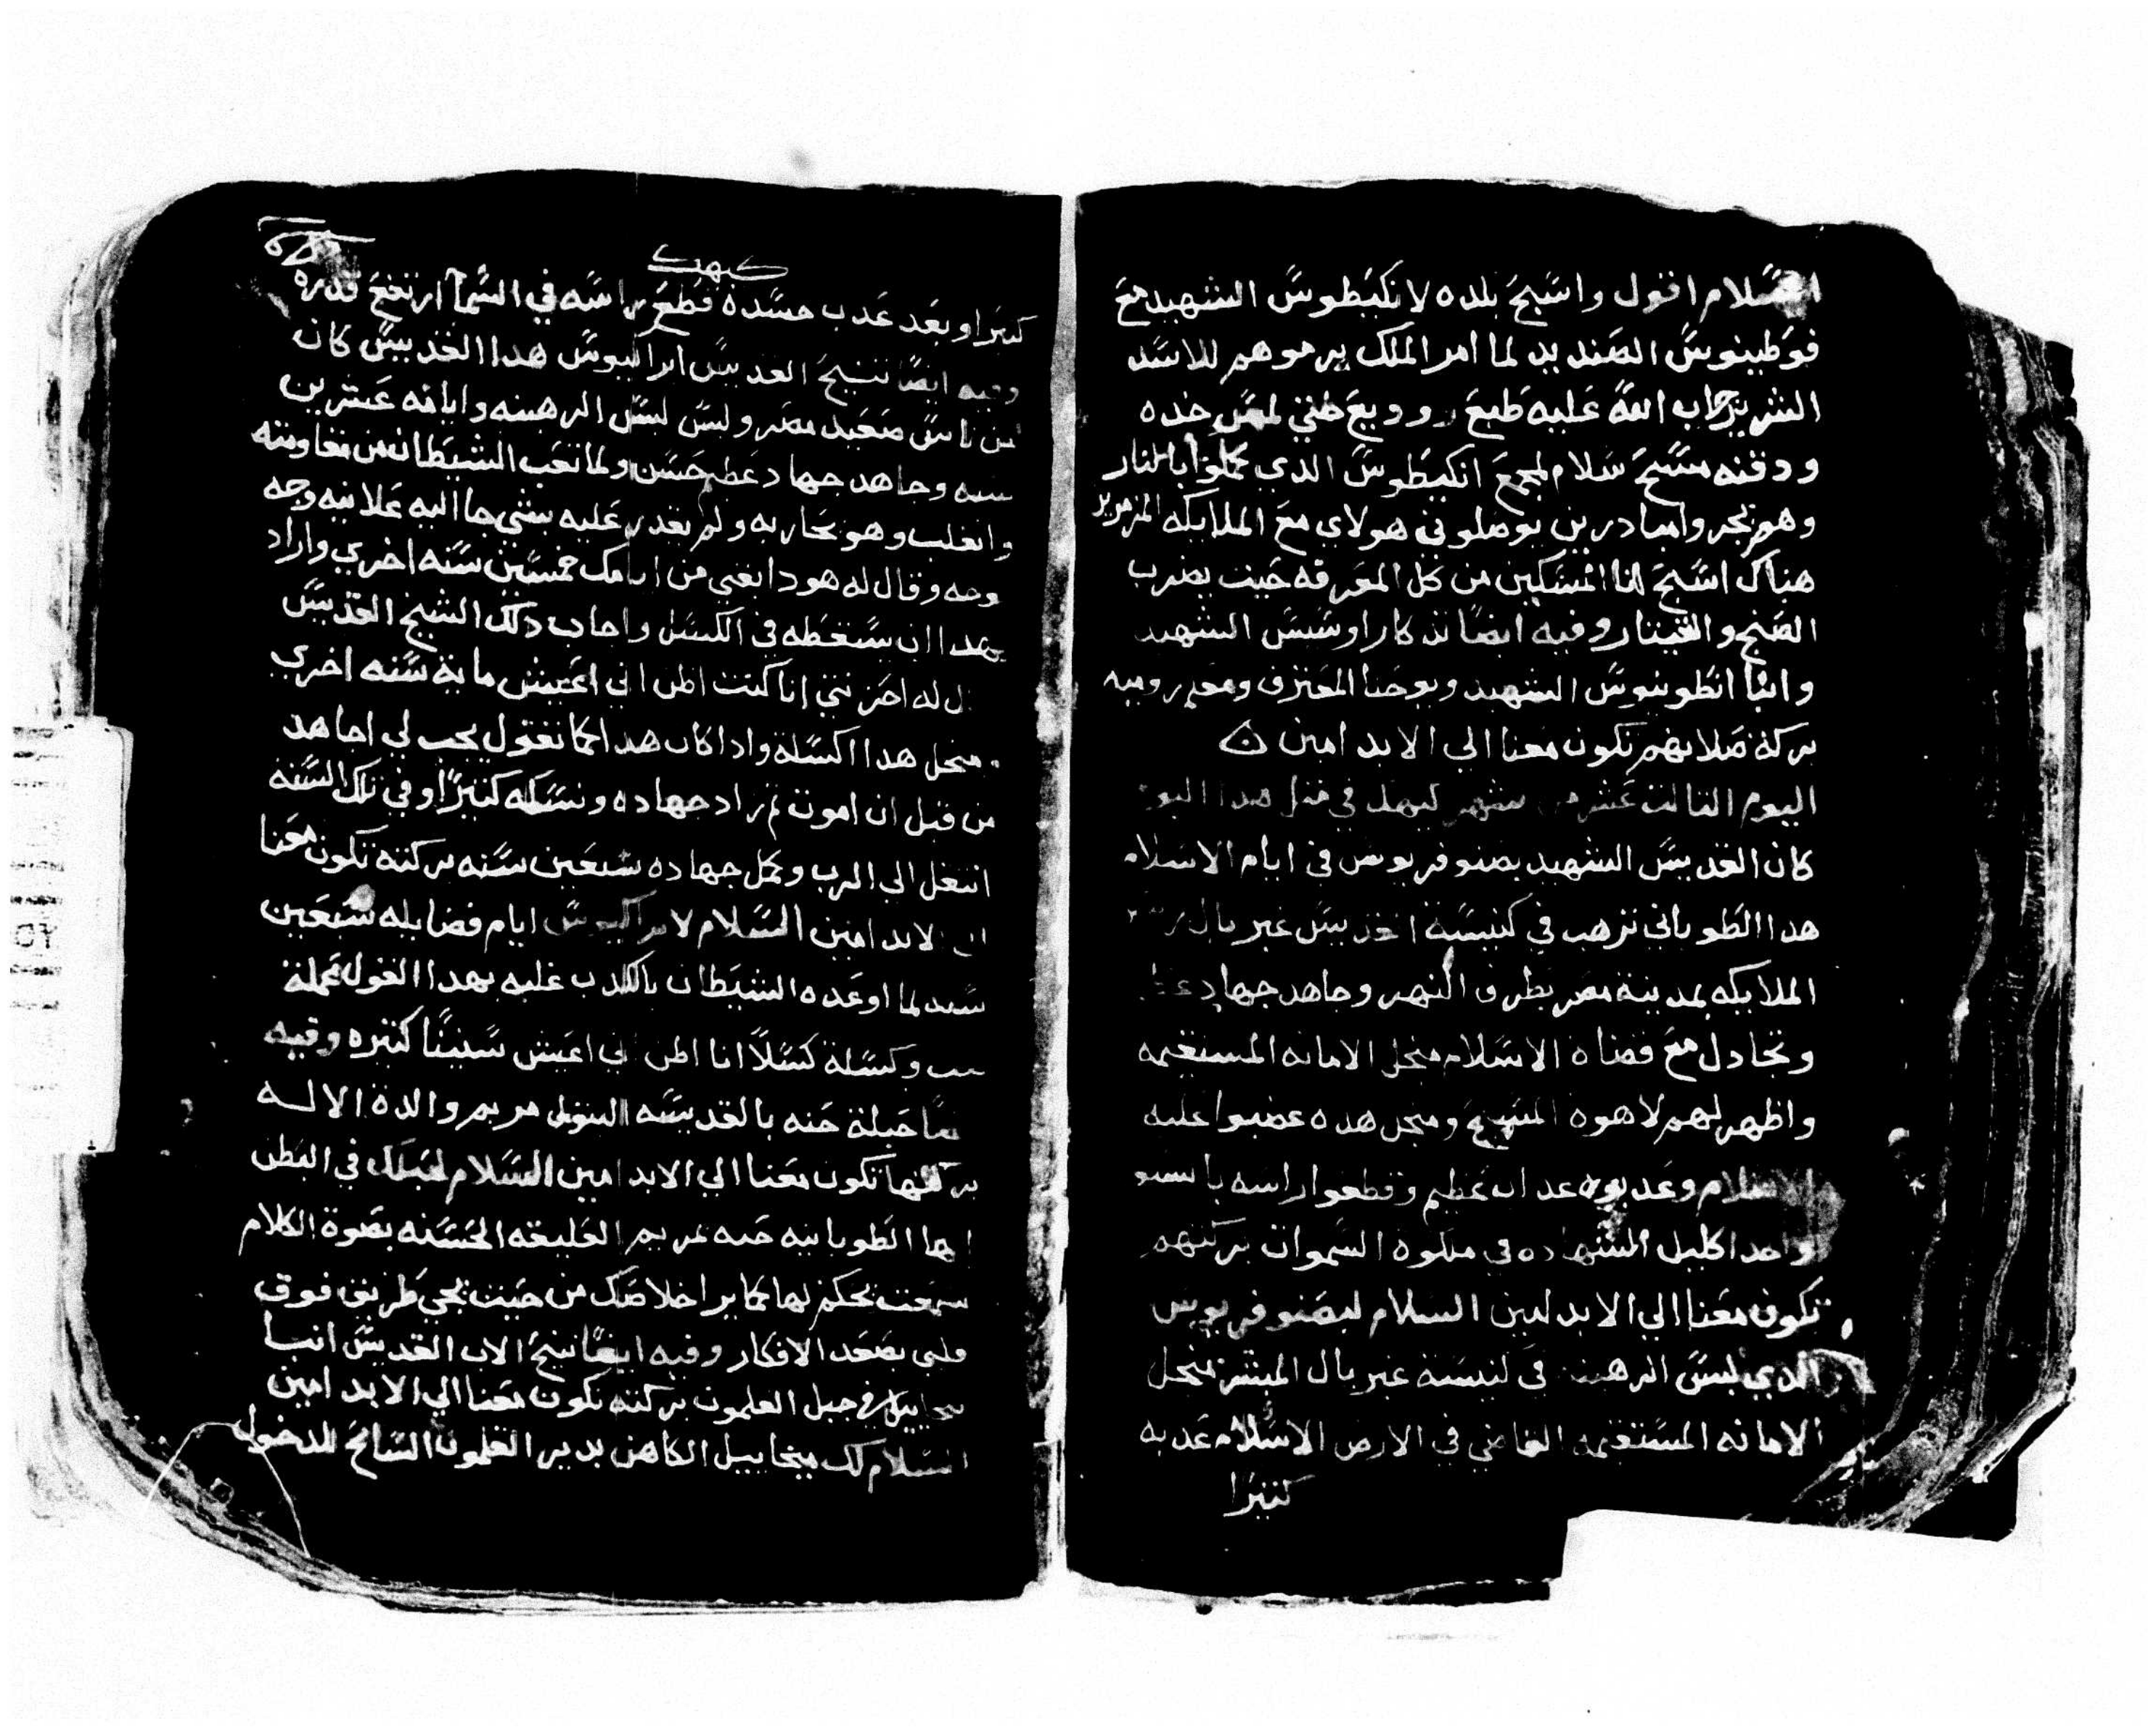 السلام اقول واسبح بلده لانكيطوس الشهيد مع
فوطينوس الصنديد لما امر الملك يرموهم للاسد
الشرير جاب الله عليه طبع وديع حتي لمس خده
ودقنه مسبح سلام لمجمع انكيطوس الدي كملوا بالنار
وهو نجر وامبادرين يوصلوني هولاي مع الملايكه المزمرين
هناك اسبح انا المسكين من كل المعرفه حيت يضرب
الصنج والقيتار وفيه ايضا تدكار اوسيس الشهيد
وانبا انطونيوس الشهيد ويوحنا المعترف ومعلم روميه
بركة صلاتهم تكون معنا الي الابد امين
اليوم التالت عشر من شهر كيهك في متل هدا اليوم
كان القديس الشهيد بصنوفريوس في ايام الاسلام
هدا الطوباني ترهب في كنيسة القديس غبريال رييس
الملايكه بمدينة مصر بطرف النهر وجاهد جهاد عظيم
وتجادل مع قضاة الاسلام منجل الامانه المستقيمه
واظهر لهم لاهوة المسيح ومنجل هده غضبوا عليه
الاسلام وعدبوه عداب عظيم وقطعوا راسه بالسيف
واخد اكليل الشهاده في ملكوة السموات بركتهم
تكون معنا الي الابد امين السلام لبصنوفريوس
الدي لبس الرهبنه في كنيسة غبريال المبشر منجل
الامانه المستقيمه القاضي في الارض الاسلام عدبه
كتيرا
كيهك
كتيرا وبعد عدب جسده قطع راسه في السما ارتفع قدره
وفيه ايضا تنيح القديس ابراكيوس هدا القديس كان
من ناس صعيد مصر ولبس لبس الرهبنه وايامه عشرين
سنه وجاهد جهاد عظيم حسن ولما تعب الشيطان من مقاومته
وانغلب وهو يحاربه ولم يقدر عليه بشي جا اليه علانيه وجه
بوجه وقال له هودا بقي من ايامك خمسين سنه اخري واراد
بهدا ان يسقطه في الكسل واجاب دلك الشيخ القديس
قال له احزنتني انا كنت اظن اني اعيش ماية سنه اخري
ومنجل هدا اكسله وادا كان هدا كما تقول يجب لي اجاهد
من قبل ان اموت تم زاد جهاده ونسكه كتيرا وفي تلك السنه
انتقل الي الرب وكمل جهاده سبعين سنه بركته تكون معنا
الي الابد امين السلام لابراكيوس ايام فضايله سبعين
سنه لما اوعده الشيطان بالكدب غلبه بهدا القول بحملة
تعب وكسلة كسلا انا اظن اني اعيش سنينا كتيره وفيه
ايضا حبلة حنه بالقديسه البتول مريم والدة الاله
بركتها تكون معنا الي الابد امين السلام لحبلك في البطن
ايها الطوبانيه حنه مريم الخليقه الحسنه بصوة الكلام
سمعت نحكم لها كما يرا خلاصك من حيت يجي طريق فوق
قلبي يصعد الافكار وفيه ايضا نيح الاب القديس انبا
ميخاييل في جبل القلمون بركته تكون معنا الي الابد امين
السلام لك ميخاييل الكاهن بدير القلمون السايح للدخول